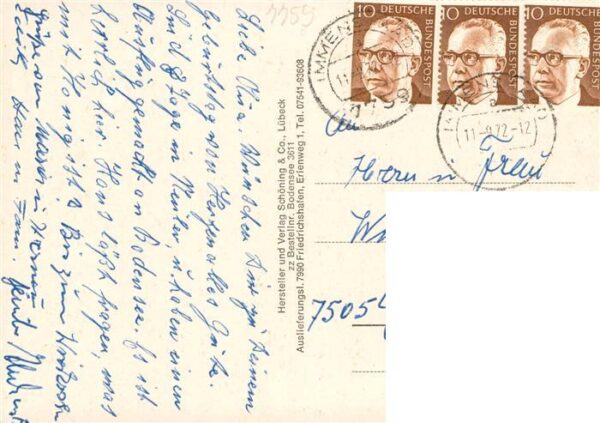 1159
Liebe Oma. Wünschen Dir zu Deinem
Geburtstag von Herzen alles Gute.
Sind 8 Tage in u. haben einen
Ausflug gemacht an Bodensee. Es ist
herrlich hier. Hans läßt fragen, was
mit Honig ist? Bis zum Wiedersehn
Grüße von u. Werner
Hans u. Fam.
Hersteller und Verlag Schöning & Co., Lübeck
zz Bestellnr. Bodensee 3611
Auslieferungsl. 7990 Friedrichshafen, Erlenweg 1, Tel. 07541-93608
10 DEUTSCHE BUNDESPOST
10 DEUTSCHE BUNDESPOST
10 DEUTSCHE BUNDESPOST
IMMENSTAAD
IMMENSTAAD
a
11.-9.72-12
An
Herrn u. Frau
7505